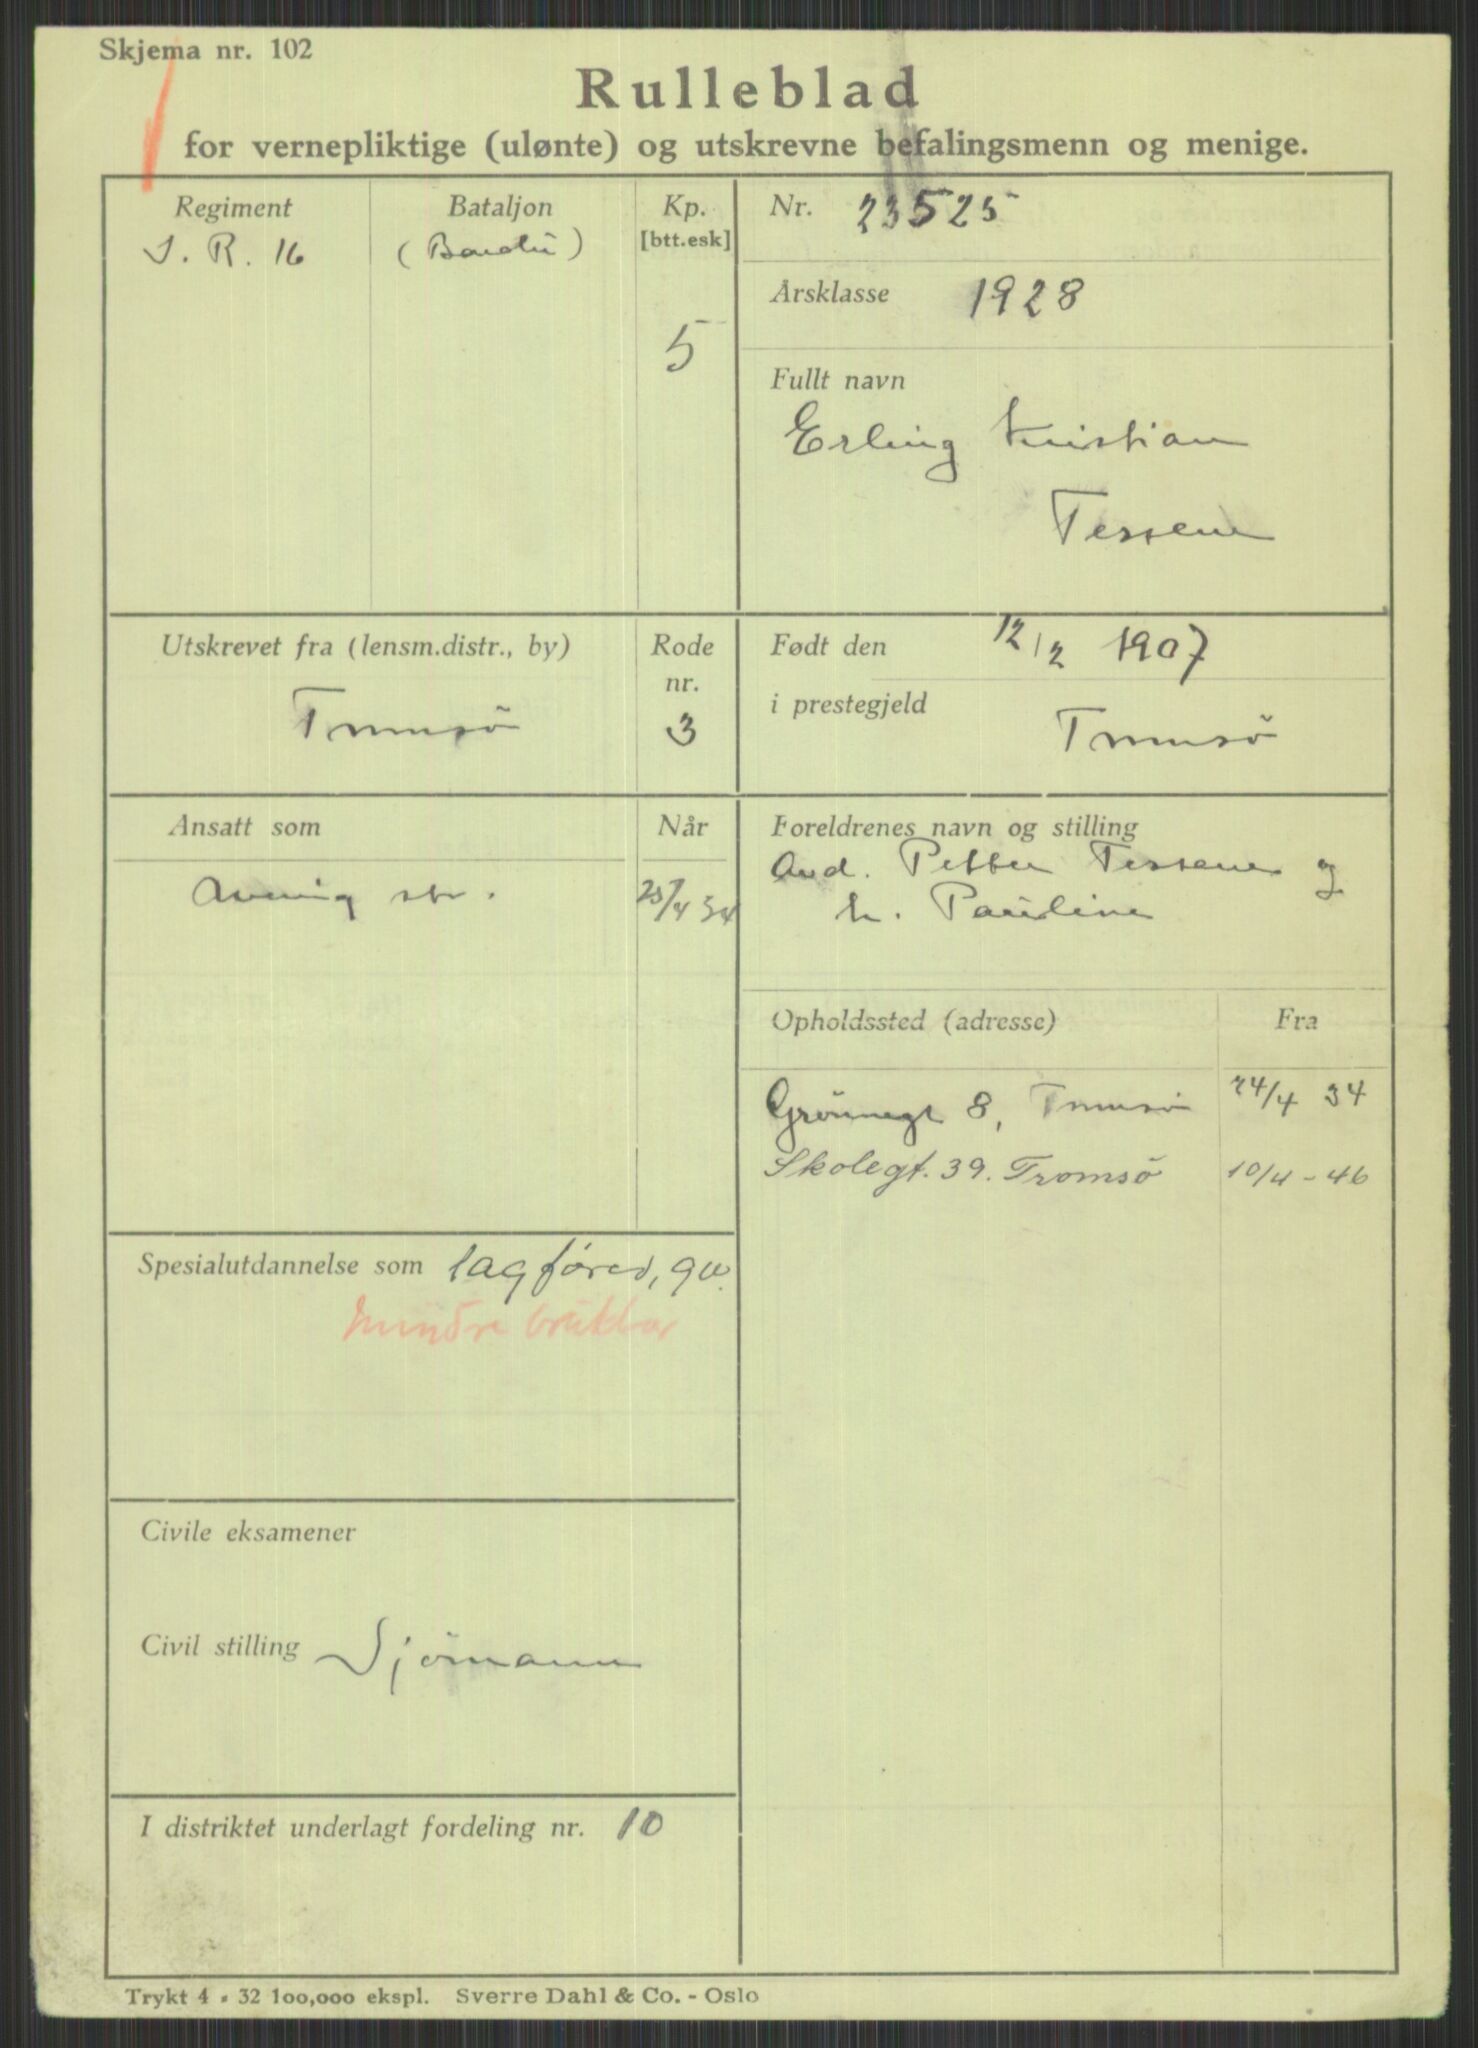 Skjema nr. 102
Rulleblad
for vernepliktige (ulønte) og utskrevne befalingsmenn og menige.
Regiment
I. R. 16
Bataljon
Kp.
[btt.esk]
5
Nr. 23525
Årsklasse 1928
Fullt navn
Erling Kristian
Tessem
Utskrevet fra (lensm.distr., by)
Tromsö
Rode
nr.
3
Født den 12/2 1907
i prestegjeld
Tromsö
Ansatt som
Når
Foreldrenes navn og stilling
And. Petter Tessem og
h. Pauline
Opholdssted (adresse)
Fra
Grönnegt 8, Tromsö 24/4 34
Skolegt. 39. Tromsö 10/4-46
Spesialutdannelse som lagfører, gv.
mindre brukbar
Civile eksamener
Civil stilling Sjömann
I distriktet underlagt fordeling nr. 10
Trykt 4 - 32 100,000 ekspl. Sverre Dahl & Co. - Oslo